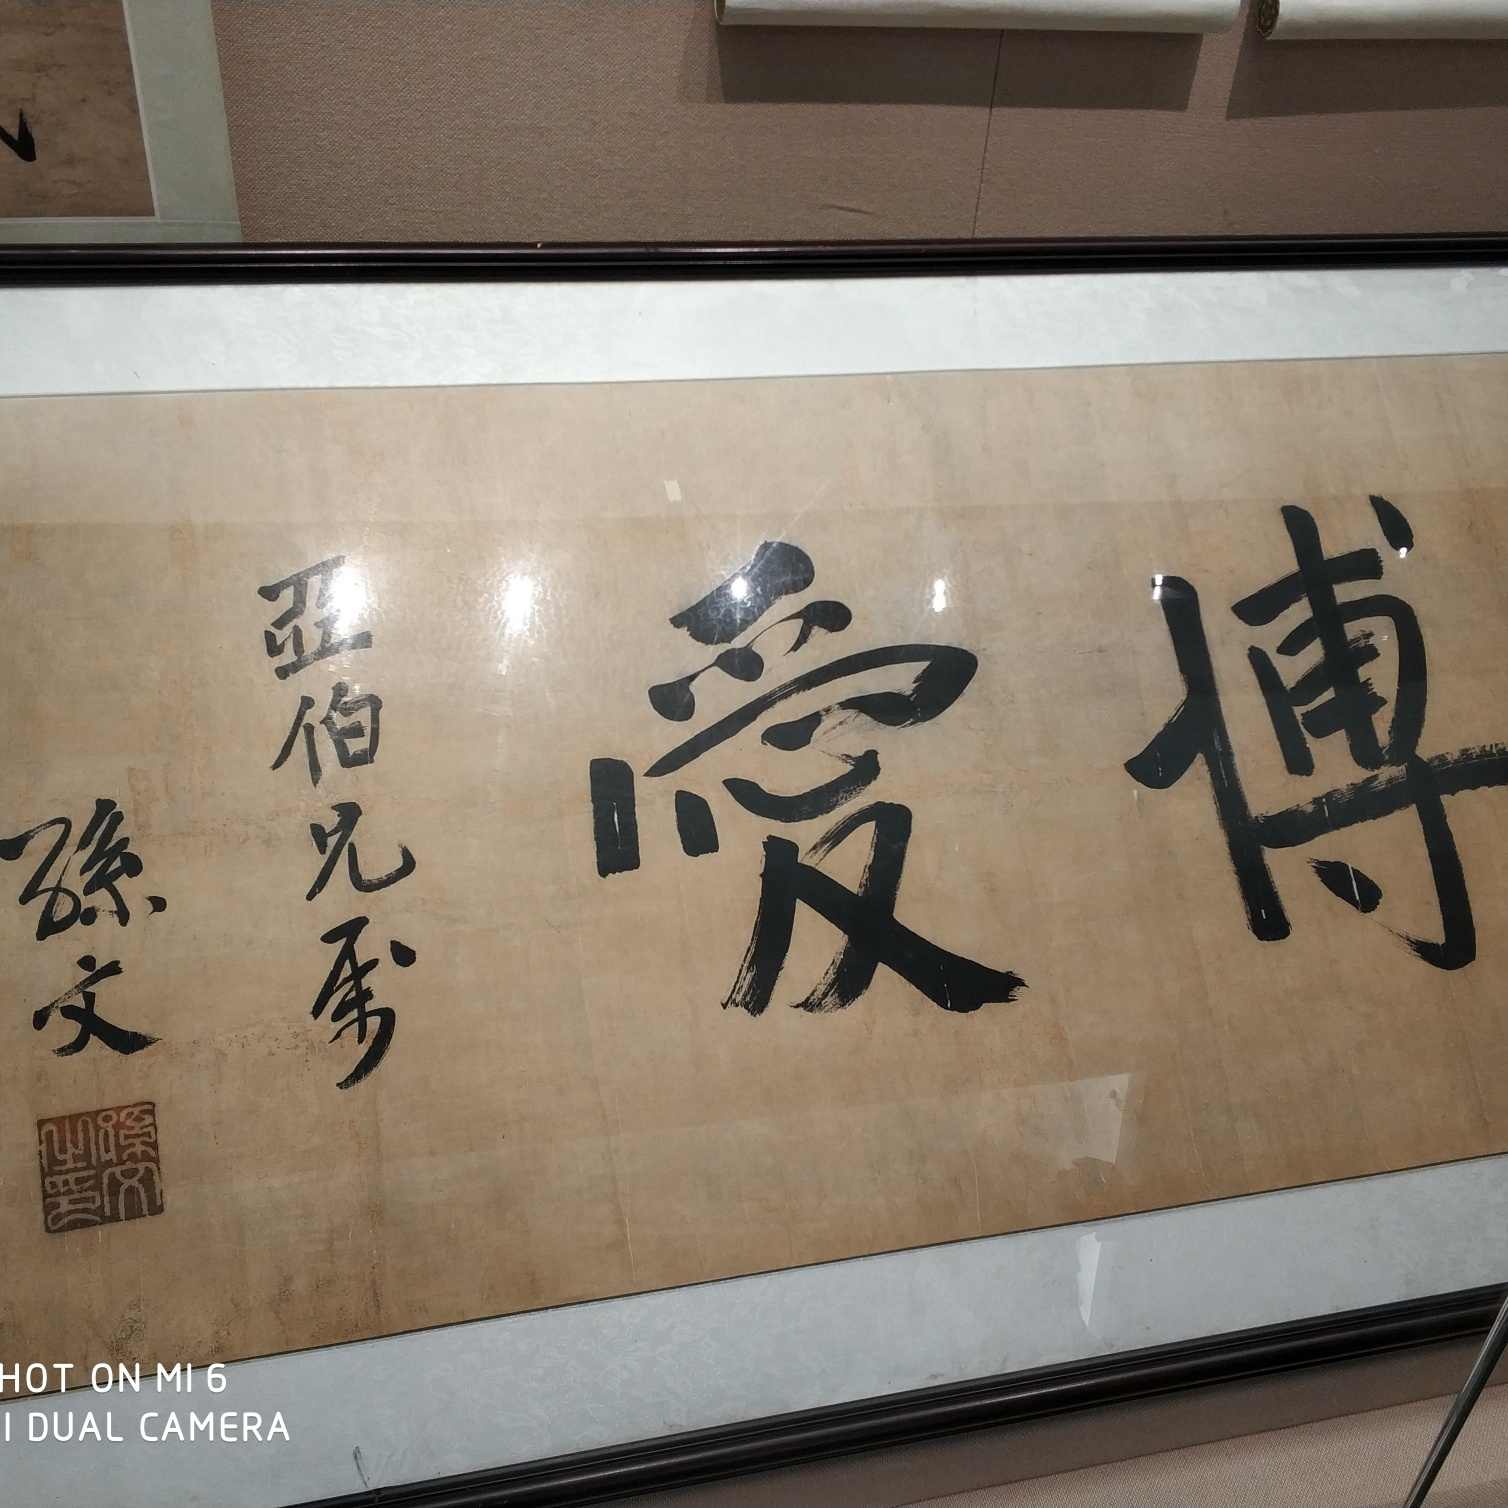 博愛
亞伯兄属
孫文
孫文之印
SHOT ON MI 6
MI DUAL CAMERA